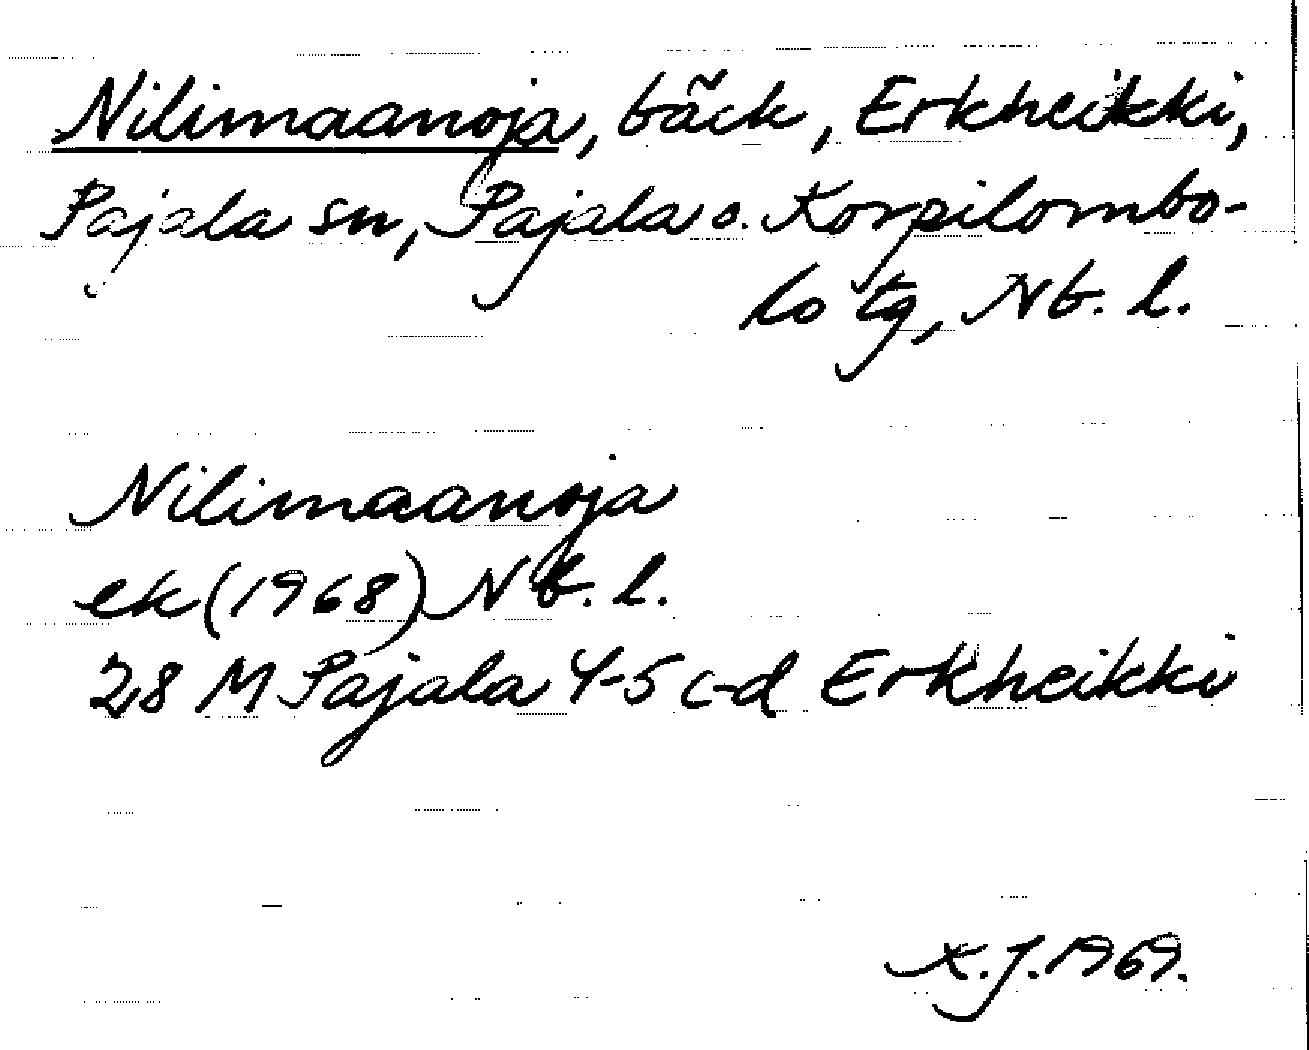 Nilimaanoja, bäck, Erkheikki,
Pajala sn, Pajala o. Korpilombo-
lo tg, Nb. l.
Nilimaanoja
ek (1968) Nb. l.
28 M Pajala 4-5 c-d Erkheikki
K.J. 1969.